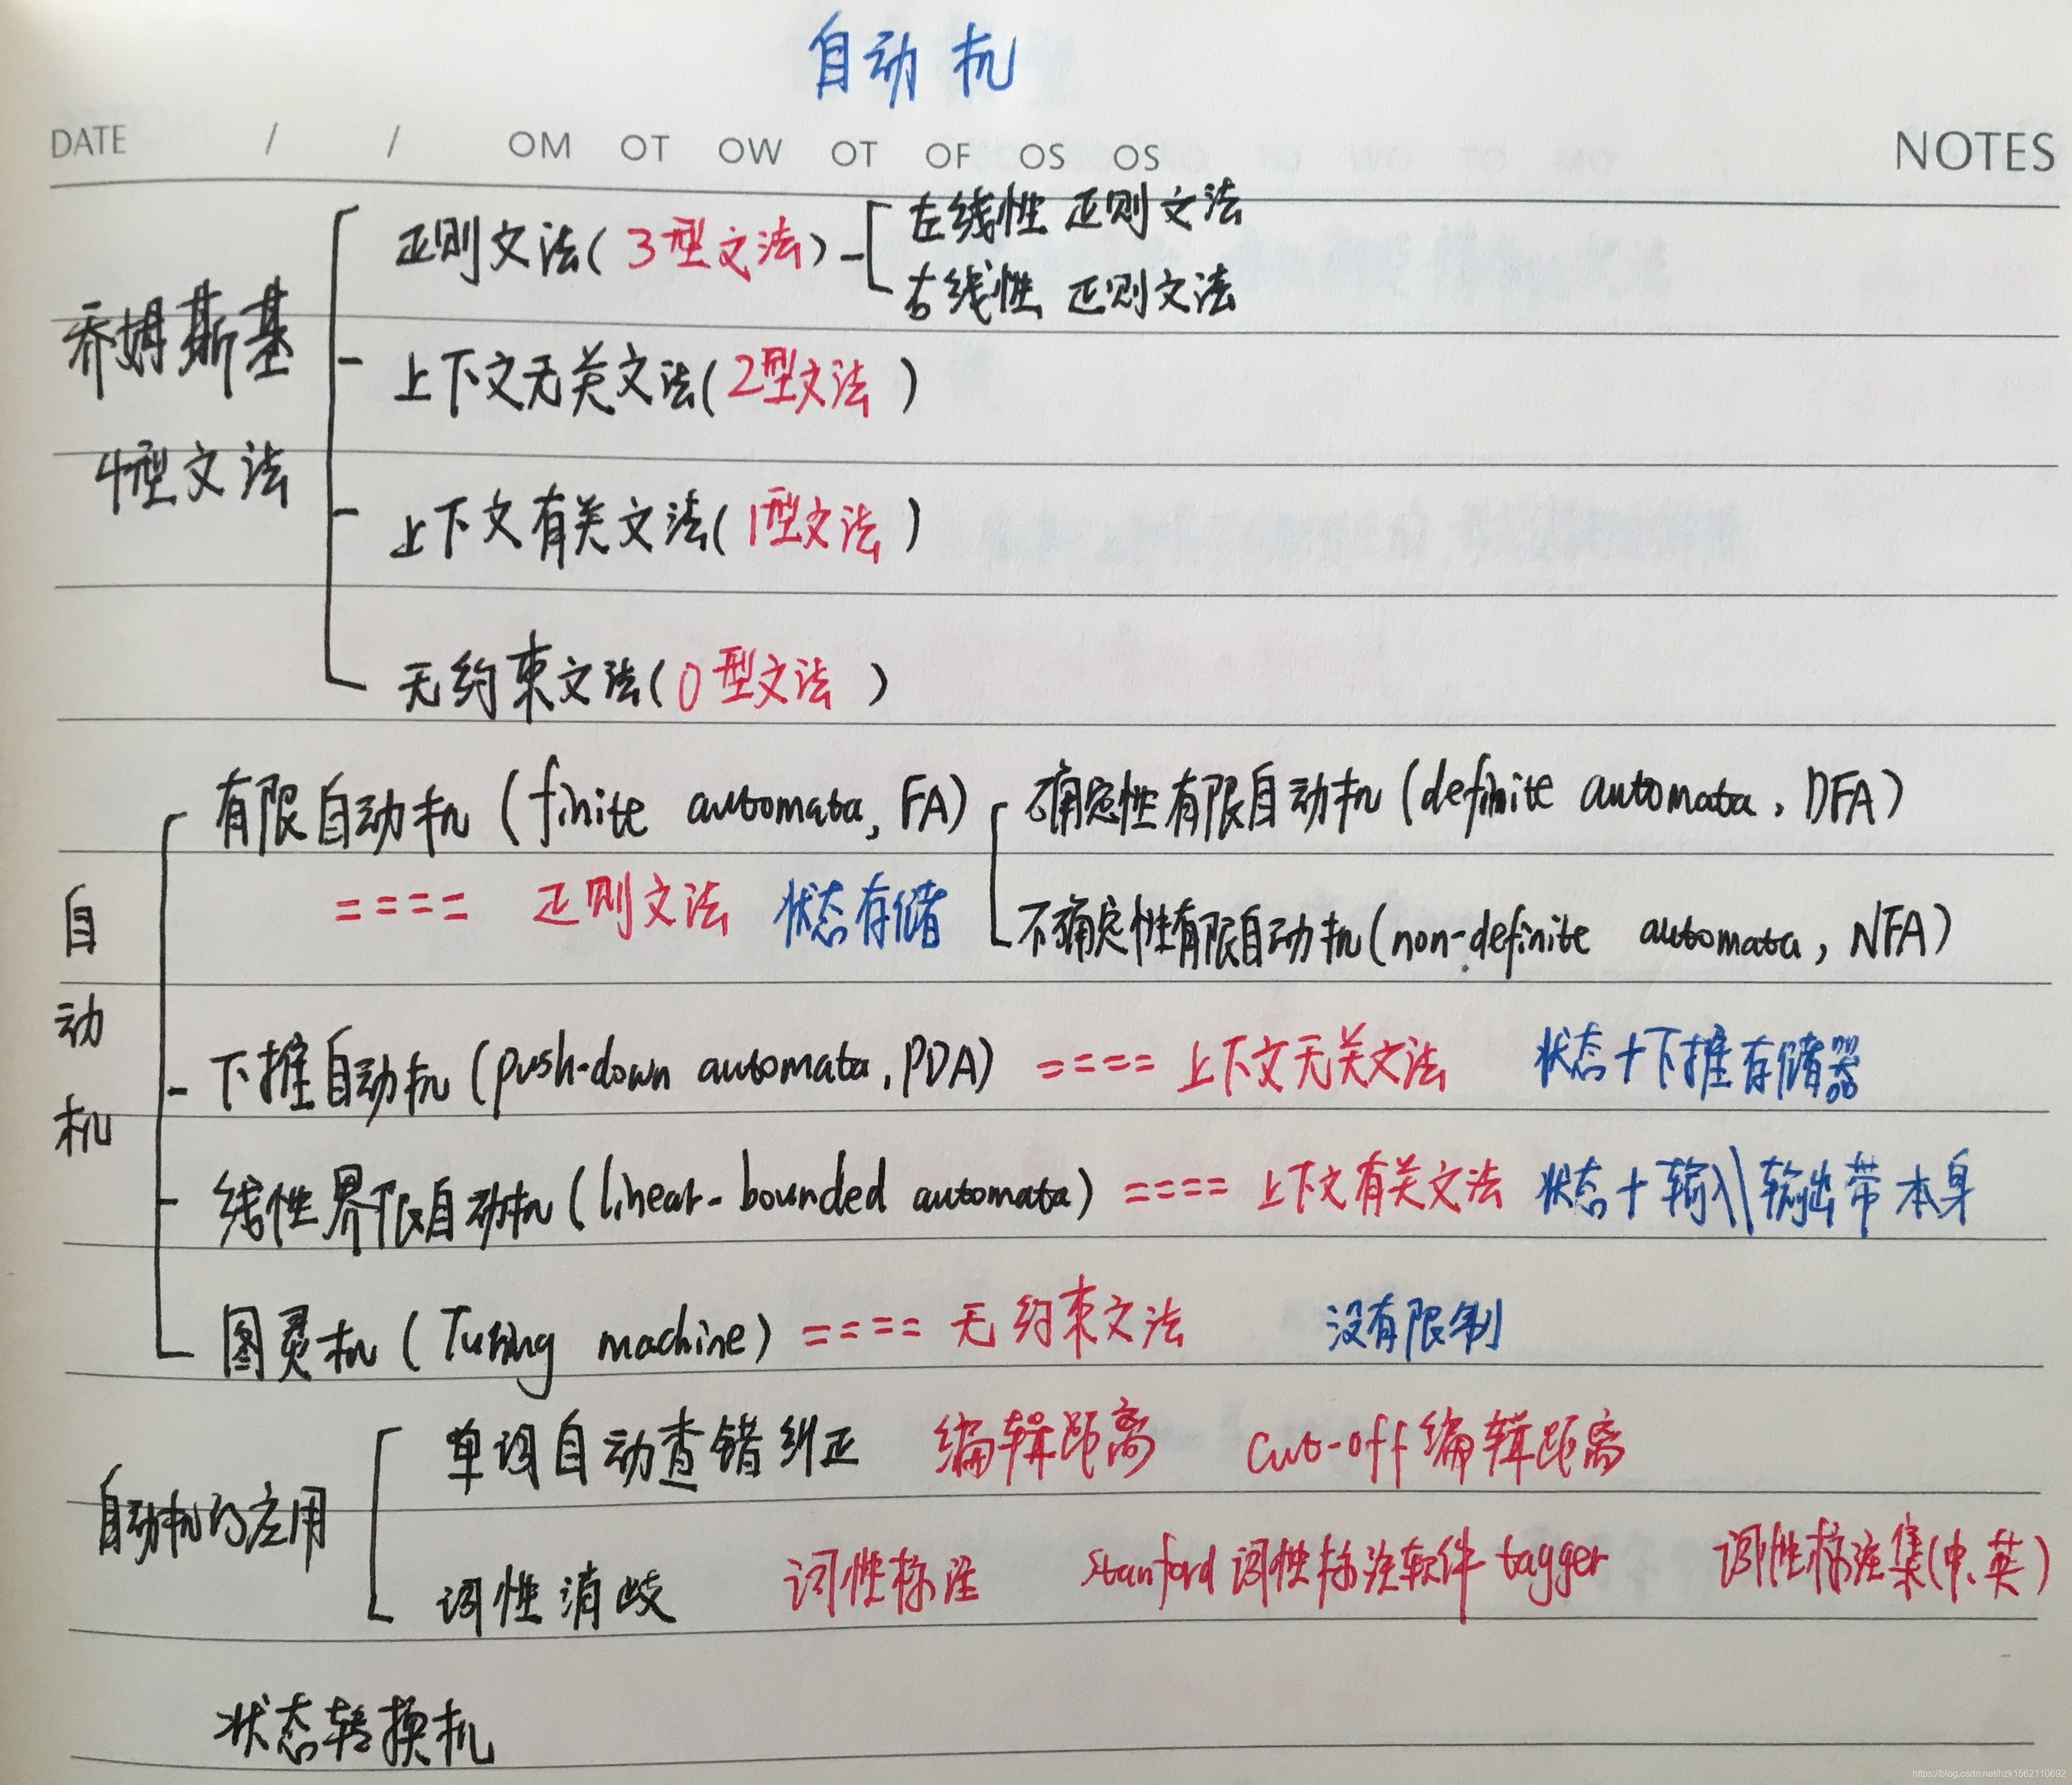 自动机
DATE / / OM OT OW OT OF OS OS NOTES
乔姆斯基
4型文法
正则文法(3型文法)
左线性 正则文法
右线性 正则文法
上下文无关文法(2型文法)
上下文有关文法(1型文法)
无约束文法(0型文法)
自动机
有限自动机 (finite automata, FA)
==== 正则文法 状态存储
确定性有限自动机 (definite automata, DFA)
不确定性有限自动机(non-definite automata, NFA)
下推自动机 (push-down automata, PDA) ==== 上下文无关文法 状态+下推存储器
线性界限自动机(linear-bounded automata) ==== 上下文有关文法 状态+输入\输出带本身
图灵机 (Turing machine) ==== 无约束文法 没有限制
自动机的应用
单词自动查错纠正 编辑距离 cut-off编辑距离
词性消歧 词性标注 Stanford 词性标注软件 tagger 词性标注集(中、英)
状态转换机
https://blog.csdn.net/hzk1562110692